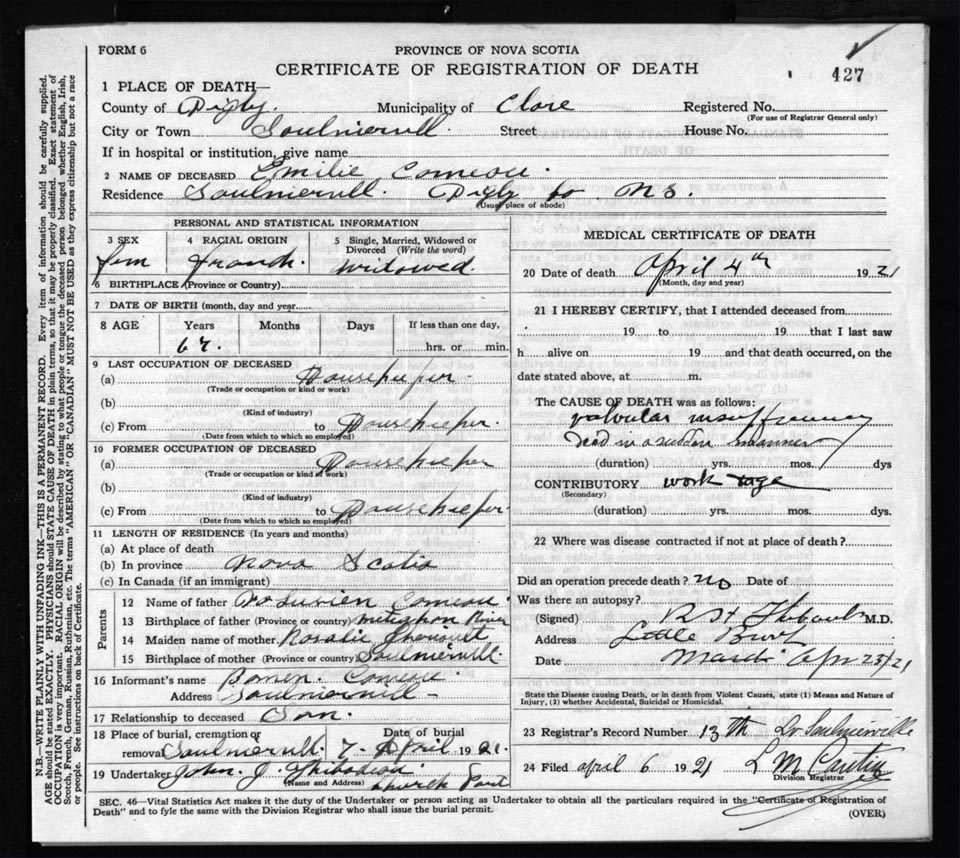 FORM 6
PROVINCE OF NOVA SCOTIA
CERTIFICATE OF REGISTRATION OF DEATH
427
1 PLACE OF DEATH—
County of Digby. Municipality of Clare Registered No.
(For use of Registrar General only)
City or Town Saulnierville. Street House No.
If in hospital or institution, give name
2 NAME OF DECEASED Emilie Comeau.
Residence Saulniervill. Digby Co N S.
(Usual place of abode)
PERSONAL AND STATISTICAL INFORMATION
3 SEX 4 RACIAL ORIGIN 5 Single, Married, Widowed or Divorced (Write the word)
fem French. Widowed.
6 BIRTHPLACE (Province or Country)
7 DATE OF BIRTH (month, day and year)
8 AGE Years Months Days If less than one day,
hrs. or min.
9 LAST OCCUPATION OF DECEASED
(a) Housekeeper.
(Trade or occupation or kind or work)
(b)
(Kind of industry)
(c) From to Housekeeper.
(Date from which to which so employed)
10 FORMER OCCUPATION OF DECEASED
(a) Housekeeper
(Trade or occupation or kind of work)
(b)
(Kind of industry)
(c) From to Housekeeper.
(Date from which to which so employed)
11 LENGTH OF RESIDENCE (In years and months)
(a) At place of death
(b) In province Nova Scotia
(c) In Canada (if an immigrant)
Parents
12 Name of father Comeau.
13 Birthplace of father (Province or country) River
14 Maiden name of mother. Rosalie
15 Birthplace of mother (Province or country) Saulniervill
16 Informant's name Comeau.
Address Saulniervill
17 Relationship to deceased Son.
18 Place of burial, cremation or removal Date of burial
Saulniervill 7 April 1921.
19 Undertaker John. J. Thibodeau.
(Name and Address) Church Point
MEDICAL CERTIFICATE OF DEATH
20 Date of death April 4th 1921
(Month, day and year)
21 I HEREBY CERTIFY, that I attended deceased from
19 to 19 that I last saw
h alive on 19 and that death occurred, on the
date stated above, at m.
The CAUSE OF DEATH was as follows:
valvular insufficiency
died in a sudden manner
(duration) yrs. mos. dys
CONTRIBUTORY work & age
(Secondary)
(duration) yrs. mos. dys.
22 Where was disease contracted if not at place of death?
Did an operation precede death? no Date of
Was there an autopsy?
(Signed) M.D.
Address Little Brook
Date 21
State the Disease causing Death, or in death from Violent Causes, state (1) Means and Nature of
Injury, (2) whether Accidental, Suicidal or Homicidal.
23 Registrar's Record Number 13th Saulnierville
24 Filed April 6 1921 L M
Division Registrar
SEC. 46—Vital Statistics Act makes it the duty of the Undertaker or person acting as Undertaker to obtain all the particulars required in the "Certificate of Registration of
Death" and to fyle the same with the Division Registrar who shall issue the burial permit.
(OVER)
N.B.—WRITE PLAINLY WITH UNFADING INK—THIS IS A PERMANENT RECORD. Every item of information should be carefully supplied.
AGE should be stated EXACTLY. PHYSICIANS should STATE CAUSE OF DEATH in plain terms, so that it may be properly classified. Exact statement of
OCCUPATION is very important. RACIAL ORIGIN will be described by stating to what people or tongue the deceased person belonged, whether English, Irish,
Scotch, French, German, Russian, Ruthenian, etc. The terms "AMERICAN" OR "CANADIAN" MUST NOT BE USED as they express citizenship but not a race
or people. See instructions on back of Certificate.